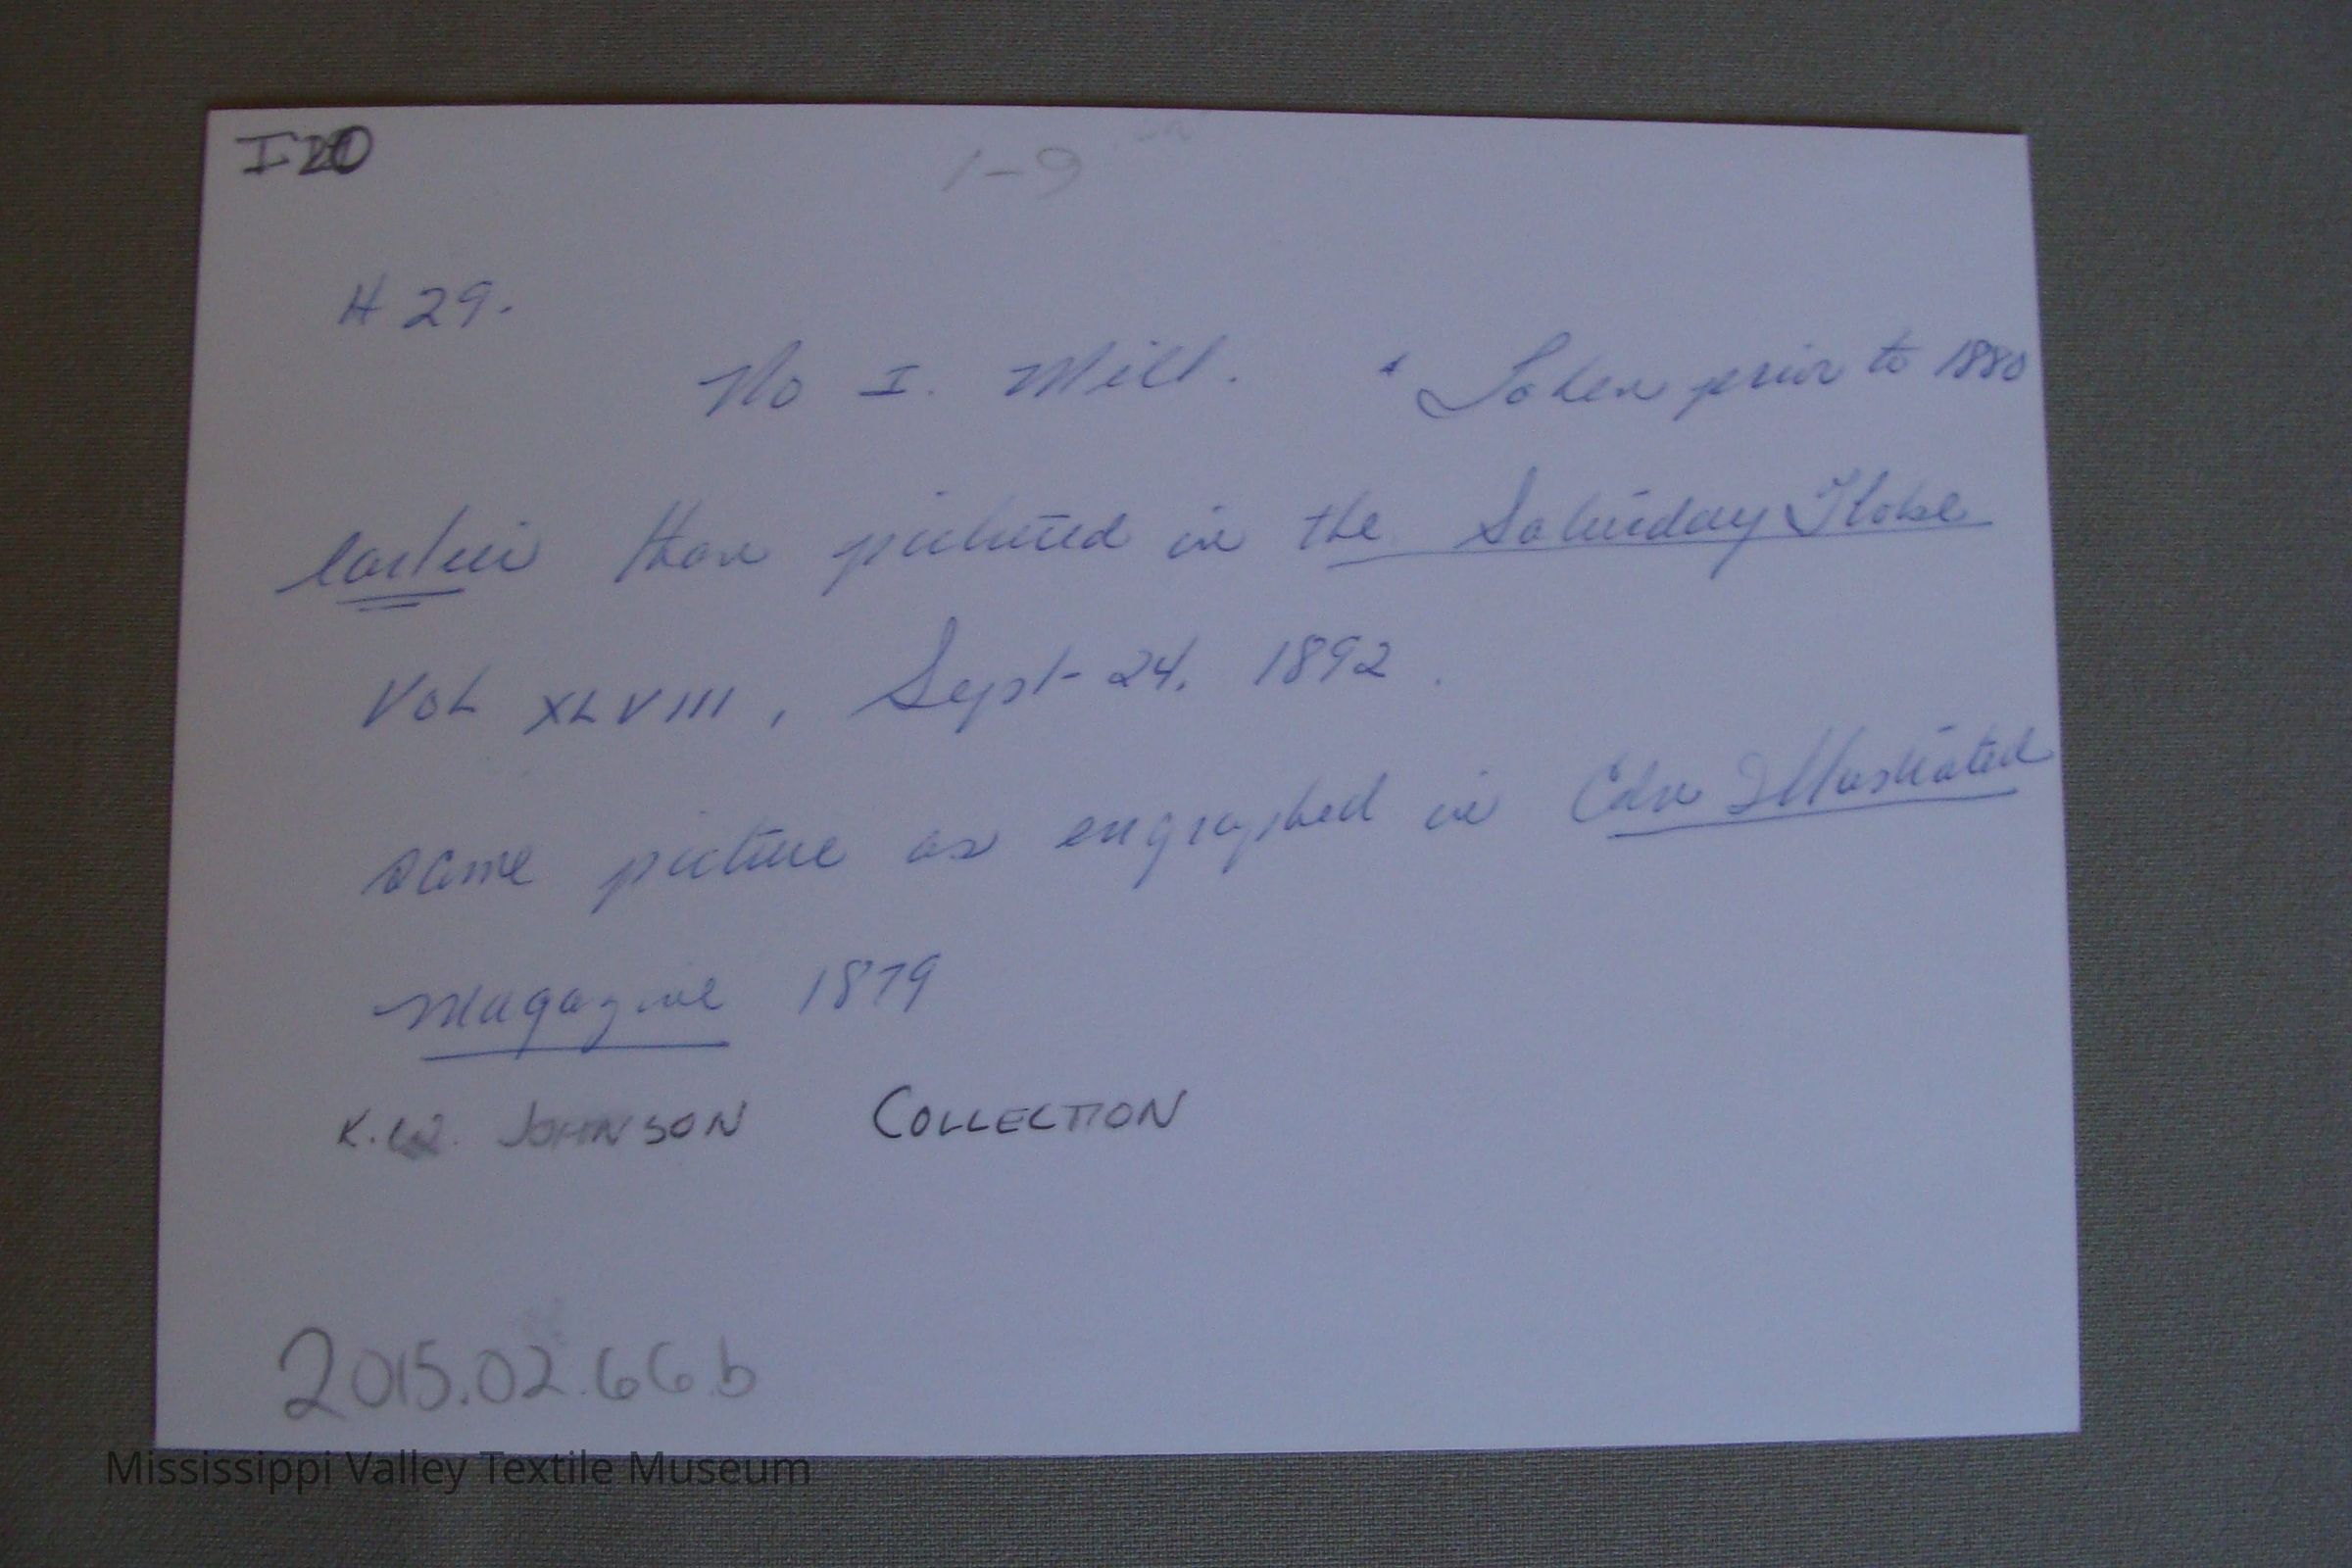 1-9
H 29.
No I. Mill. Taken prior to 1880
earlier than pictured in the Saturday Globe
Vol XLVIII, Sept 24, 1892.
same picture as engraphed in Cdn Illustrated
Magazine 1879
K.W. JOHNSON COLLECTION
2015.02.66.b
Mississippi Valley Textile Museum